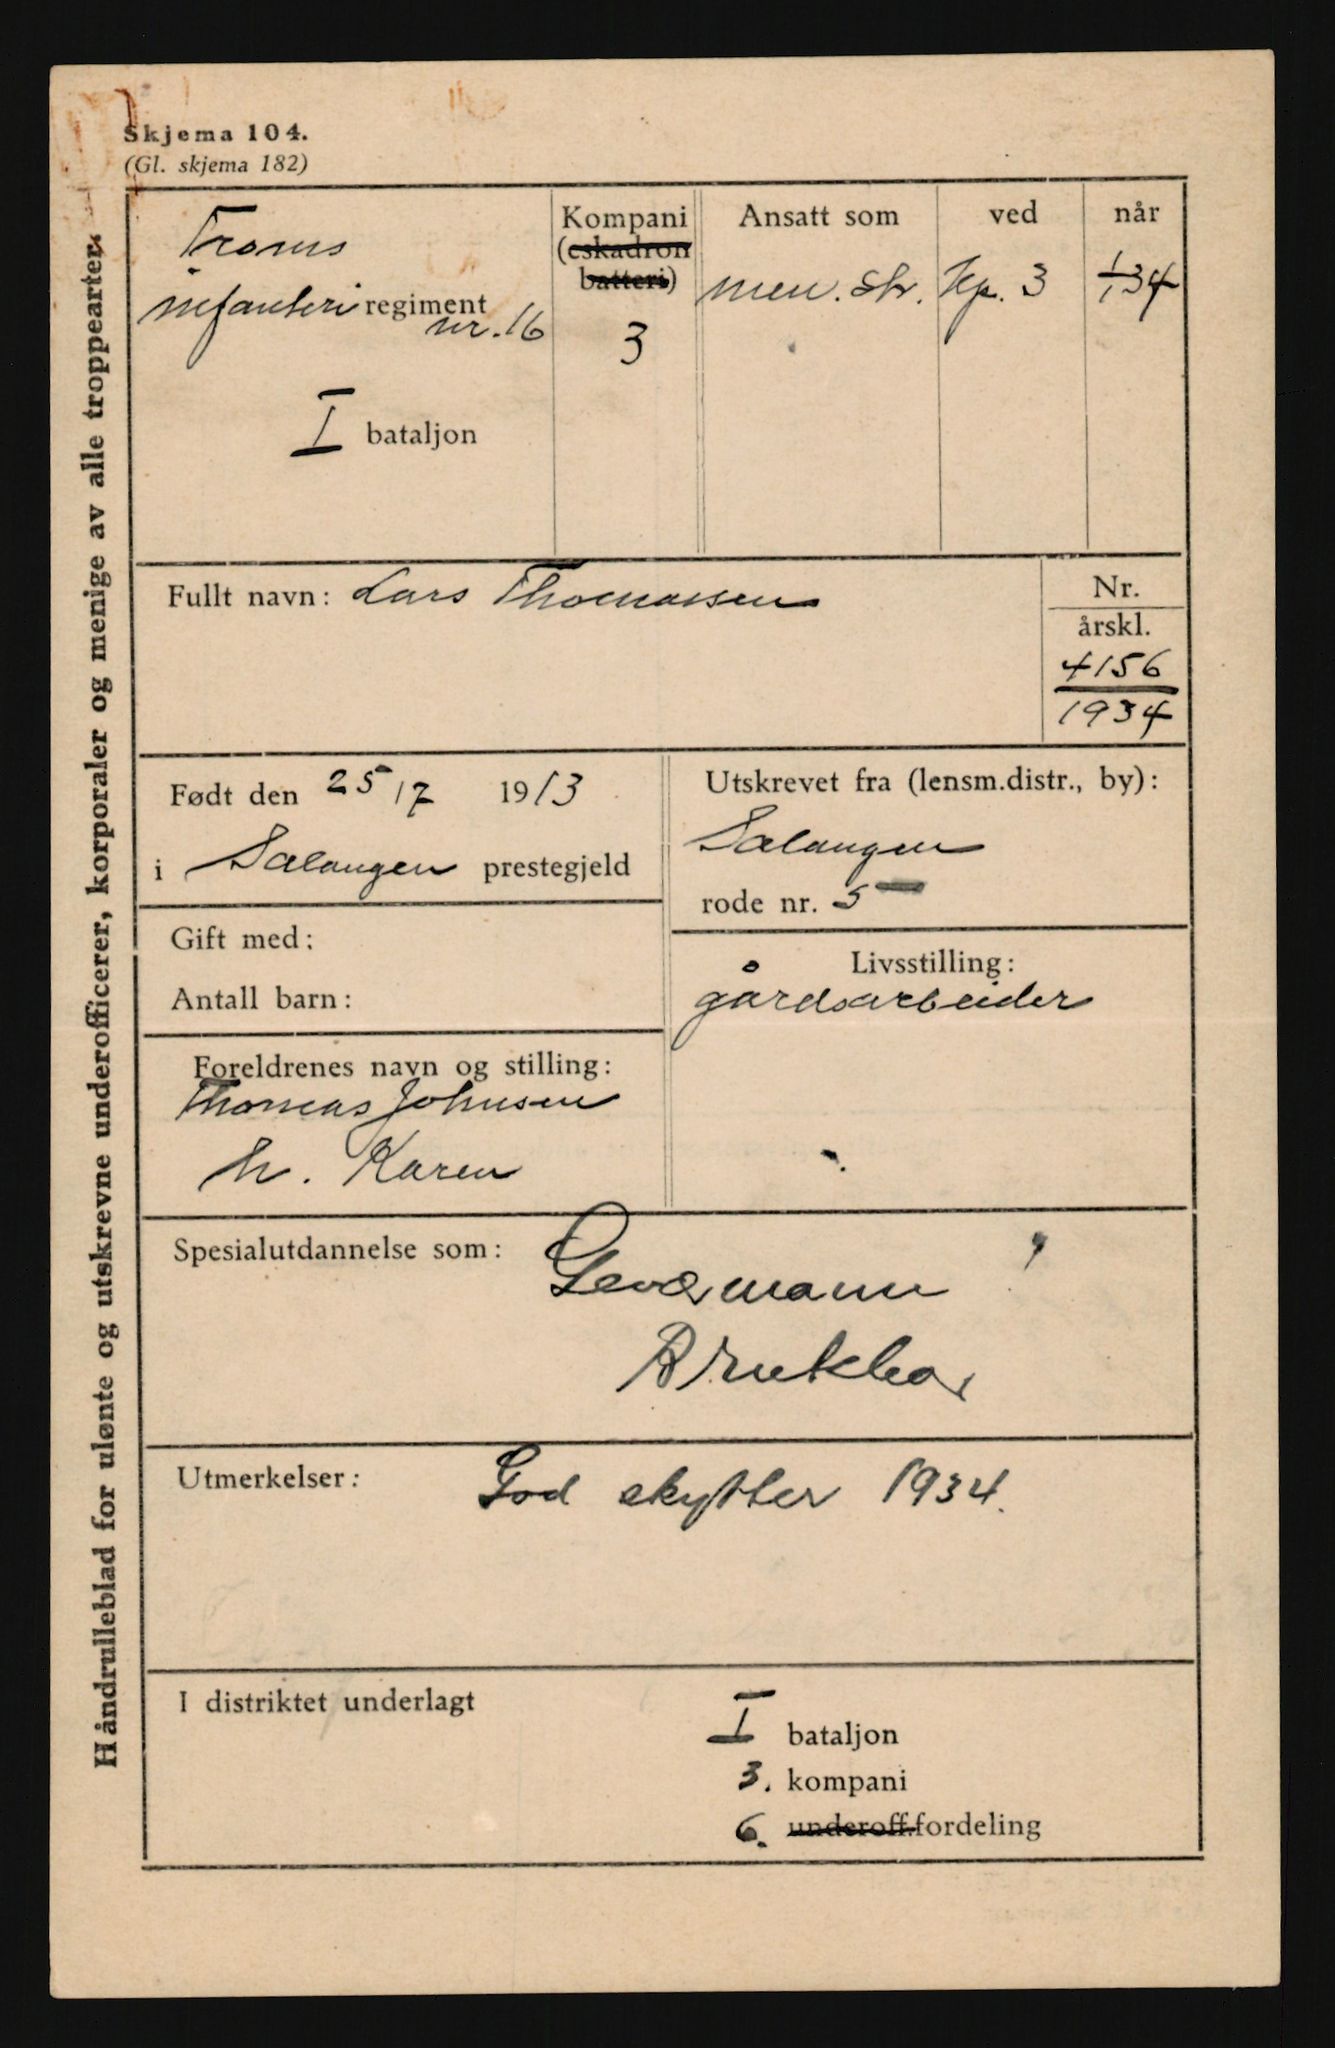 Skjema 104.
(Gl. skjema 182)
Håndrulleblad for ulønte og utskrevne underofficerer, korporaler og menige av alle troppearter.
Troms
infanteri regiment
nr. 16
I bataljon
Kompani
(eskadron
batteri)
3
Ansatt som
men. str.
ved
Kp. 3
når
1/1 34
Fullt navn: Lars Thomassen
Nr.
årskl.
4156
1934
Født den 25/7 1913
i Salangen prestegjeld
Utskrevet fra (lensm.distr., by):
Salangen
rode nr. 5
Gift med:
Antall barn:
Livsstilling:
gårdsarbeider
Foreldrenes navn og stilling:
Thomas Johnsen
h. Karen
Spesialutdannelse som:
Geværmann
Brukbar
Utmerkelser: God skytter 1934.
I distriktet underlagt
I bataljon
3. kompani
6. underoff.fordeling